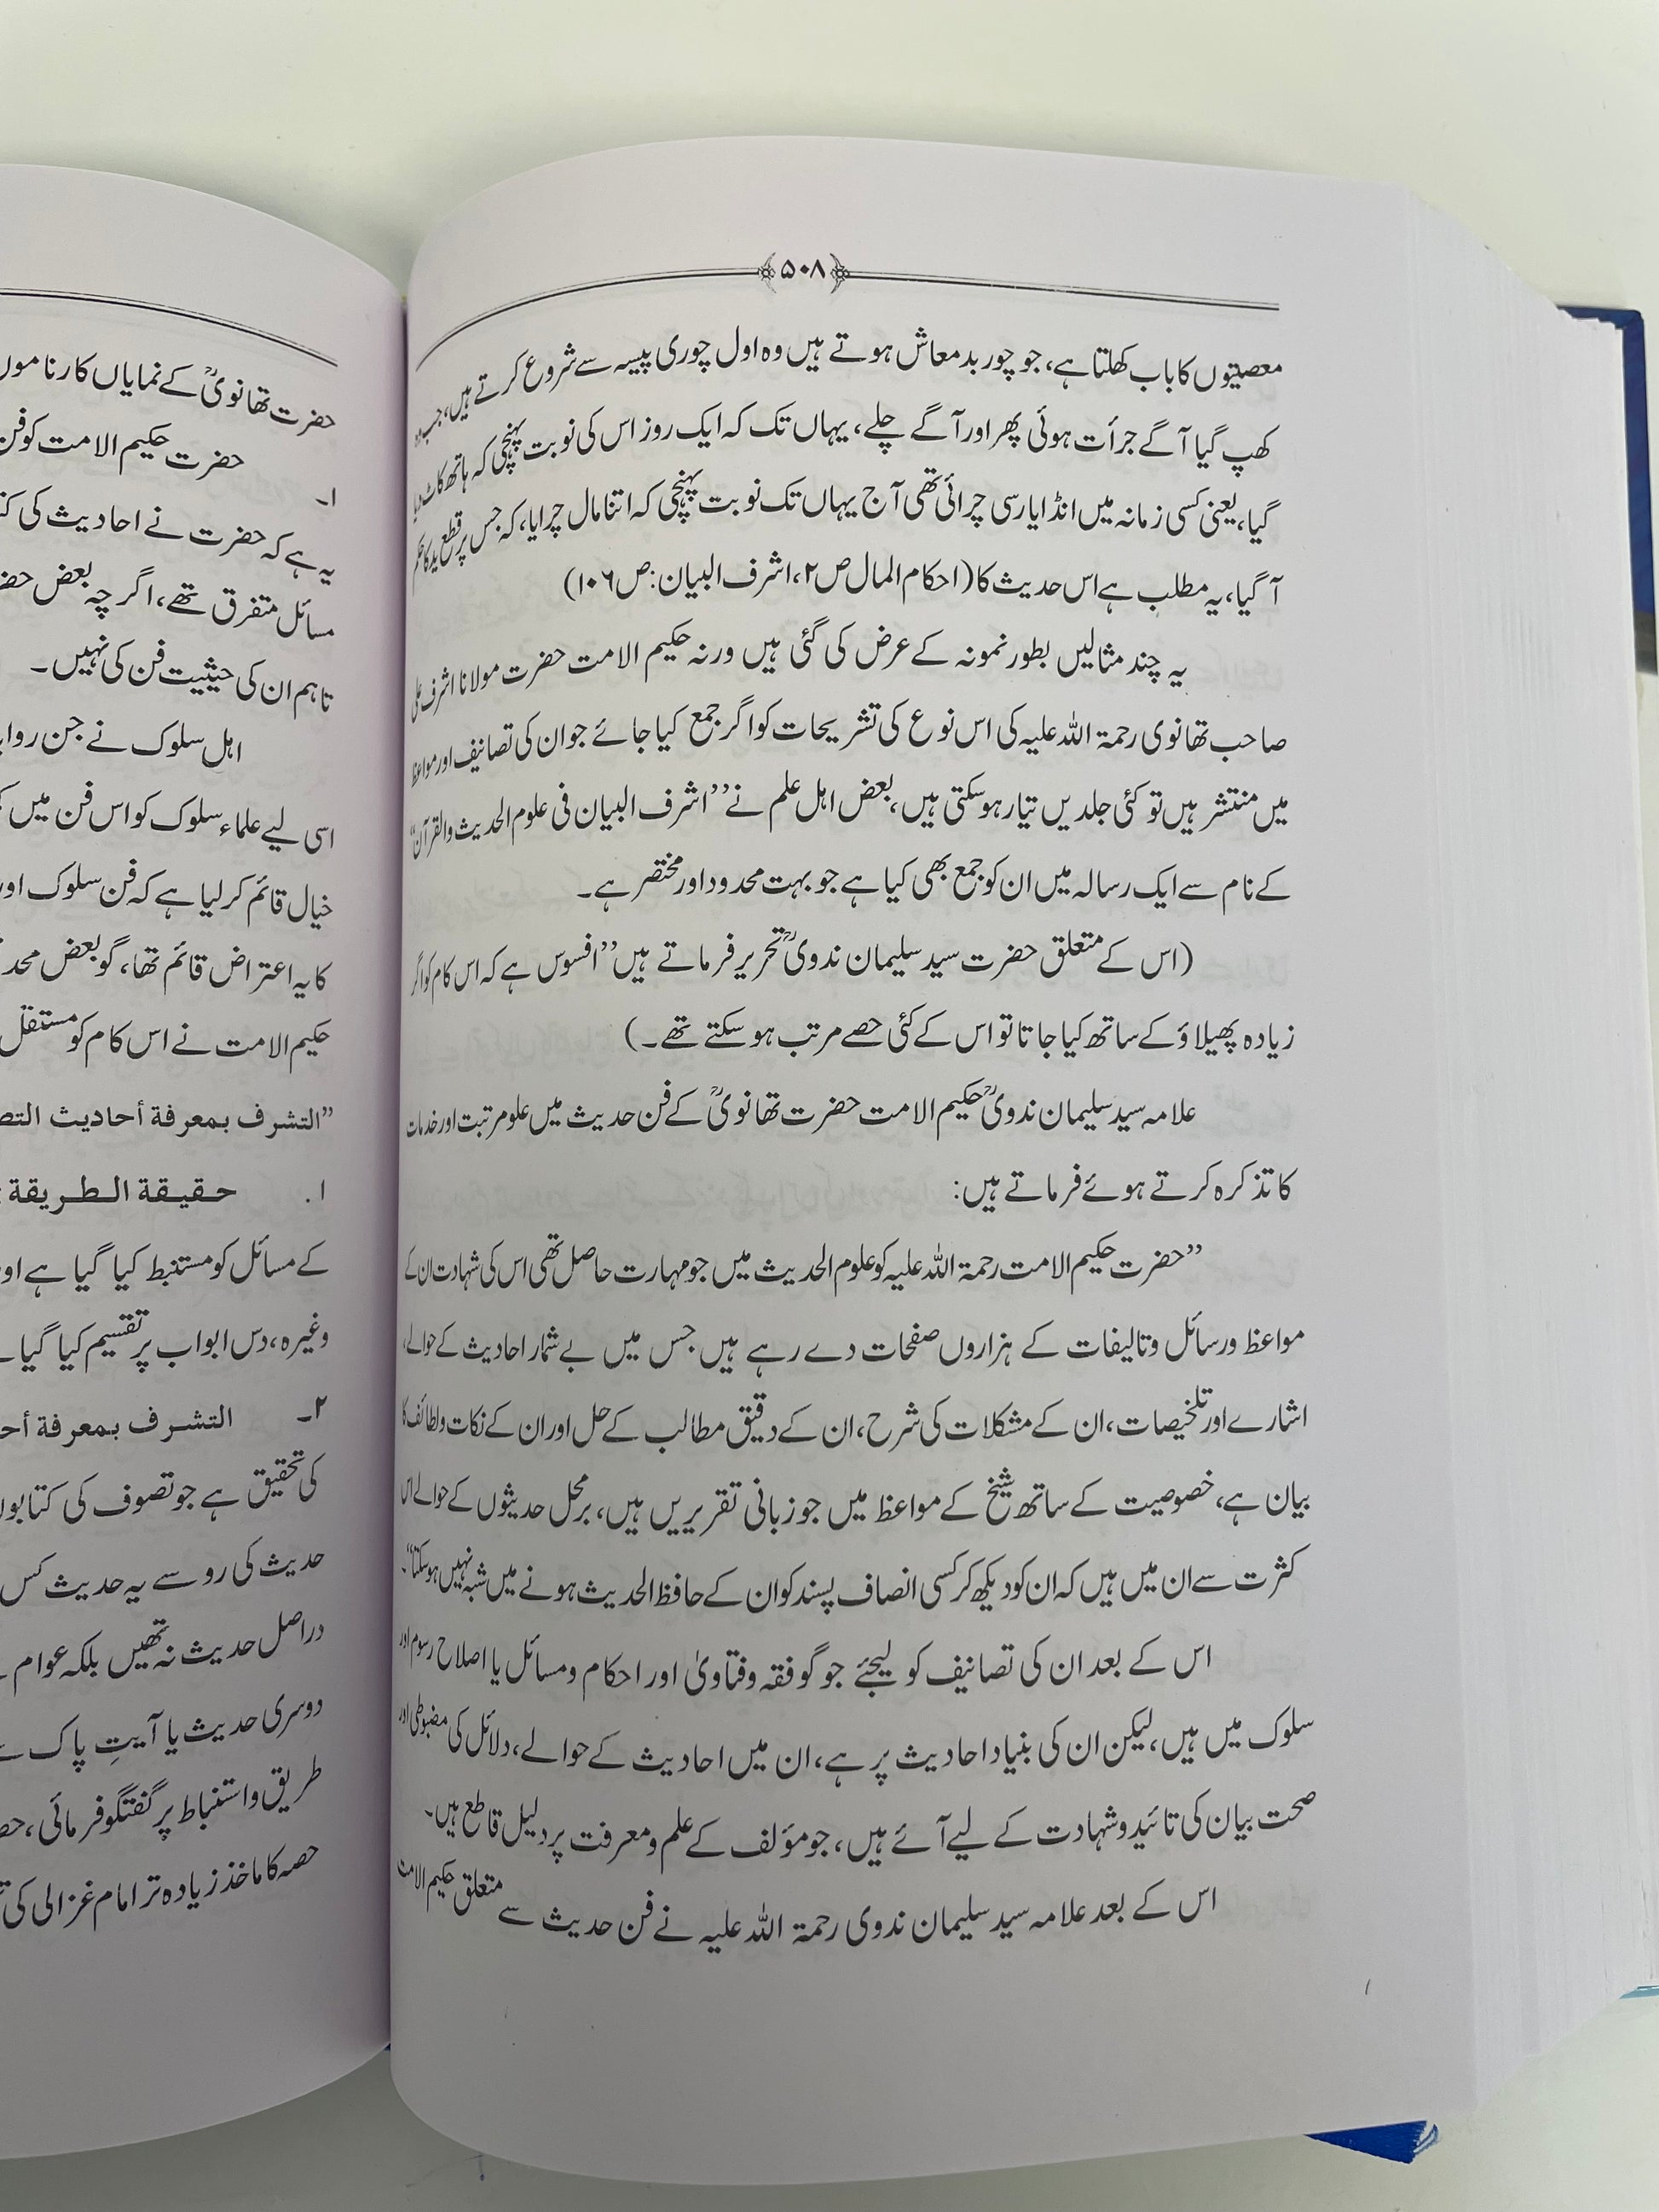 ۵۰۸
معصیتوں کا باب کھلتا ہے، جو چور بدمعاش ہوتے ہیں وہ اول چوری پیسہ سے شروع کرتے ہیں، جب وہ
کھپ گیا آگے جرأت ہوئی پھر اور آگے چلے، یہاں تک کہ ایک روز اس کی نوبت پہنچی کہ ہاتھ کاٹ دیا
گیا، یعنی کسی زمانہ میں انڈا یا رسی چرائی تھی آج یہاں تک نوبت پہنچی کہ اتنا مال چرایا، کہ جس پر قطع ید کا حکم
آگیا، یہ مطلب ہے اس حدیث کا (احکام المال ص۲، اشرف البیان: ص۱۰۶)
یہ چند مثالیں بطور نمونہ کے عرض کی گئی ہیں ورنہ حکیم الامت حضرت مولانا اشرف علی
صاحب تھانوی رحمۃ اللہ علیہ کی اس نوع کی تشریحات کو اگر جمع کیا جائے جو ان کی تصانیف اور مواعظ
میں منتشر ہیں تو کئی جلدیں تیار ہوسکتی ہیں، بعض اہل علم نے ’’اشرف البیان فی علوم الحدیث والقرآن‘‘
کے نام سے ایک رسالہ میں ان کو جمع بھی کیا ہے جو بہت محدود اور مختصر ہے۔
(اس کے متعلق حضرت سید سلیمان ندویؒ تحریر فرماتے ہیں ’’افسوس ہے کہ اس کام کو اگر
زیادہ پھیلاؤ کے ساتھ کیا جاتا تو اس کے کئی حصے مرتب ہو سکتے تھے۔)
علامہ سید سلیمان ندویؒ حکیم الامت حضرت تھانویؒ کے فن حدیث میں علو مرتبت اور خدمات
کا تذکرہ کرتے ہوئے فرماتے ہیں:
’’حضرت حکیم الامت رحمۃ اللہ علیہ کو علوم الحدیث میں جو مہارت حاصل تھی اس کی شہادت ان کے
مواعظ ورسائل وتالیفات کے ہزاروں صفحات دے رہے ہیں جس میں بے شمار احادیث کے حوالے،
اشارے اور تلخیصات، ان کے مشکلات کی شرح، ان کے دقیق مطالب کے حل اور ان کے نکات ولطائف کا
بیان ہے، خصوصیت کے ساتھ شیخ کے مواعظ میں جو زبانی تقریریں ہیں، برمحل حدیثوں کے حوالے اس
کثرت سے ان میں ہیں کہ ان کو دیکھ کر کسی انصاف پسند کو ان کے حافظ الحدیث ہونے میں شبہ نہیں ہوسکتا‘‘۔
اس کے بعد ان کی تصانیف کو لیجئے جو گو فقہ وفتاویٰ اور احکام ومسائل یا اصلاح رسوم اور
سلوک میں ہیں، لیکن ان کی بنیاد احادیث پر ہے، ان میں احادیث کے حوالے، دلائل کی مضبوطی اور
صحت بیان کی تائید وشہادت کے لیے آئے ہیں، جو مؤلف کے علم ومعرفت پر دلیل قاطع ہیں۔
اس کے بعد علامہ سید سلیمان ندوی رحمۃ اللہ علیہ نے فن حدیث سے متعلق حکیم الامت
حضرت تھانویؒ کے نمایاں کارناموں
حضرت حکیم الامت کو فن
۱۔
یہ ہے کہ حضرت نے احادیث کی
مسائل متفرق تھے، اگر چہ بعض
تاہم ان کی حیثیت فن کی نہیں۔
اہل سلوک نے جن
اسی لیے علماء سلوک کو اس فن میں
خیال قائم کرلیا ہے کہ فن سلوک اور
کا یہ اعتراض قائم تھا، گو بعض
حکیم الامت نے اس کام کو مستقل
’’التشرف بمعرفة أحاديث
۱. حقيقة الطريقة
کے مسائل کو مستنبط کیا گیا ہے اور
وغیرہ، دس ابواب پر تقسیم کیا گیا
۲۔ التشرف بمعرفة
کی تحقیق ہے جو تصوف کی کتابوں
حدیث کی رو سے یہ حدیث کس
دراصل حدیث نہ تھیں بلکہ عوام
دوسری حدیث یا آیتِ پاک سے
طریق واستنباط پر گفتگو فرمائی،
حصہ کا ماخذ زیادہ تر امام غزالی کی